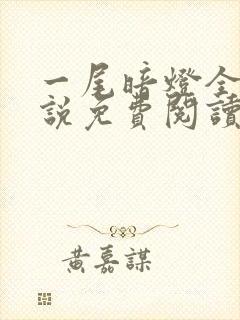 一尾暗燈全
說免費閱讀
黃嘉謀